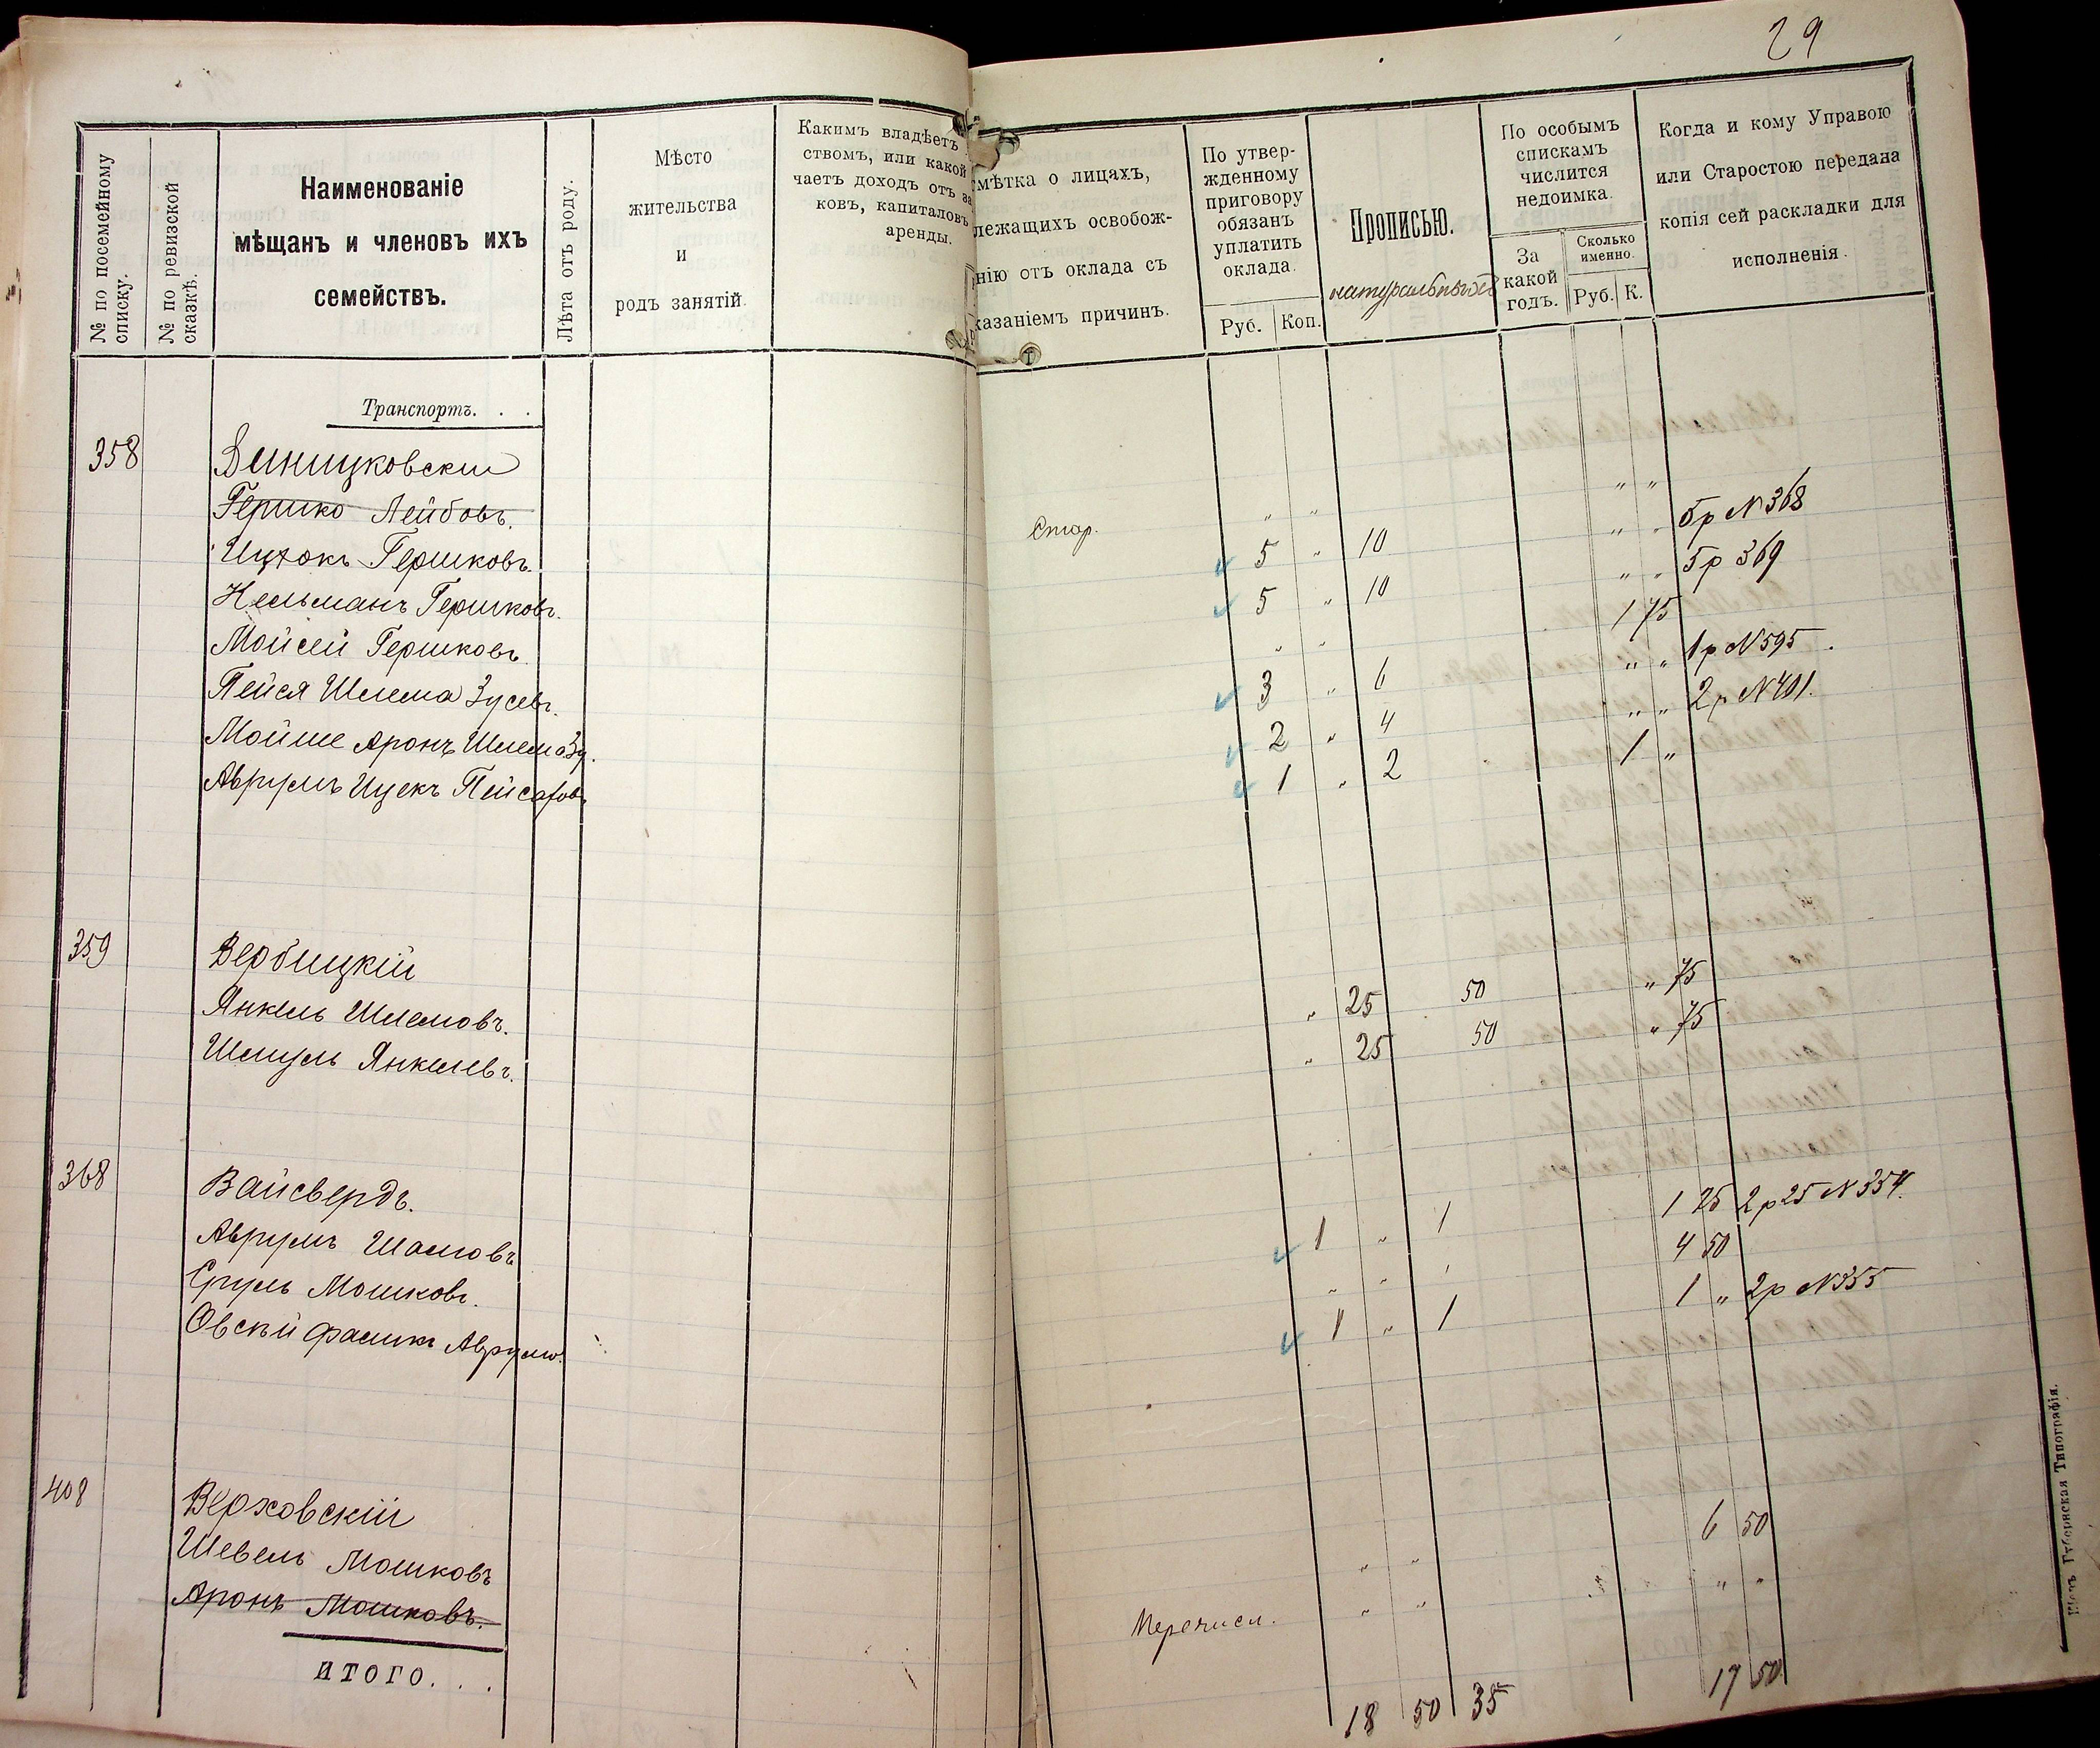 29
№ по посемейному списку.
№ по ревизской сказкѣ.
Наименованіе
мѣщанъ и членовъ ихъ
семействъ.
Лѣта отъ роду.
Мѣсто
жительства
и
родъ занятій.
Какимъ владѣетъ
ствомъ, или какой
чаетъ доходъ отъ за
ковъ, капиталовъ
аренды.
мѣтка о лицахъ,
лежащихъ освобож-
нію отъ оклада съ
казаніемъ причинъ.
По утвер-
жденному
приговору
обязанъ
уплатить
оклада.
Руб. Коп.
Прописью.
натуральный
По особымъ
спискамъ
числится
недоимка.
За
какой
годъ.
Сколько
именно.
Руб. К.
Когда и кому Управою
или Старостою передана
копія сей раскладки для
исполненія.
Транспортъ. . .
358 Виницковскій
Гершко Лейбовъ. Стар. " " " "
Ицхокъ Гершковъ. 5 " 10 " " 5р N 368
Нельманъ Гершковъ. 5 " 10 " " 5р 369
Мойсей Гершковъ. " " 1 75
Пейся Шлема Зусевъ. 3 " 6 " " 1р N 595
Мойше Аронъ Шлема Зу. 2 " 4 " " 2р N 401.
Аврумъ Ицекъ Пейсахов. 1 " 2 1 "
359 Вербицкій
Янкель Шлемовъ. " 25 50 " 75
Шмуль Янкелевъ. " 25 50 " 75
368 Вайсвердъ.
Аврумъ Шамовъ 1 " 1 1 25 2р 25 N 354.
Сруль Мошковъ. " " ' 4 50
Овсѣй Фаликъ Аврумо. 1 " 1 1 " 2р N 355
408 Верховскій
Шевель Мошковъ " " 6 50
Аронъ Мошковъ. Перечисл. " " " "
ИТОГО. . . 18 50 35 17 50
Губернская Типографія.